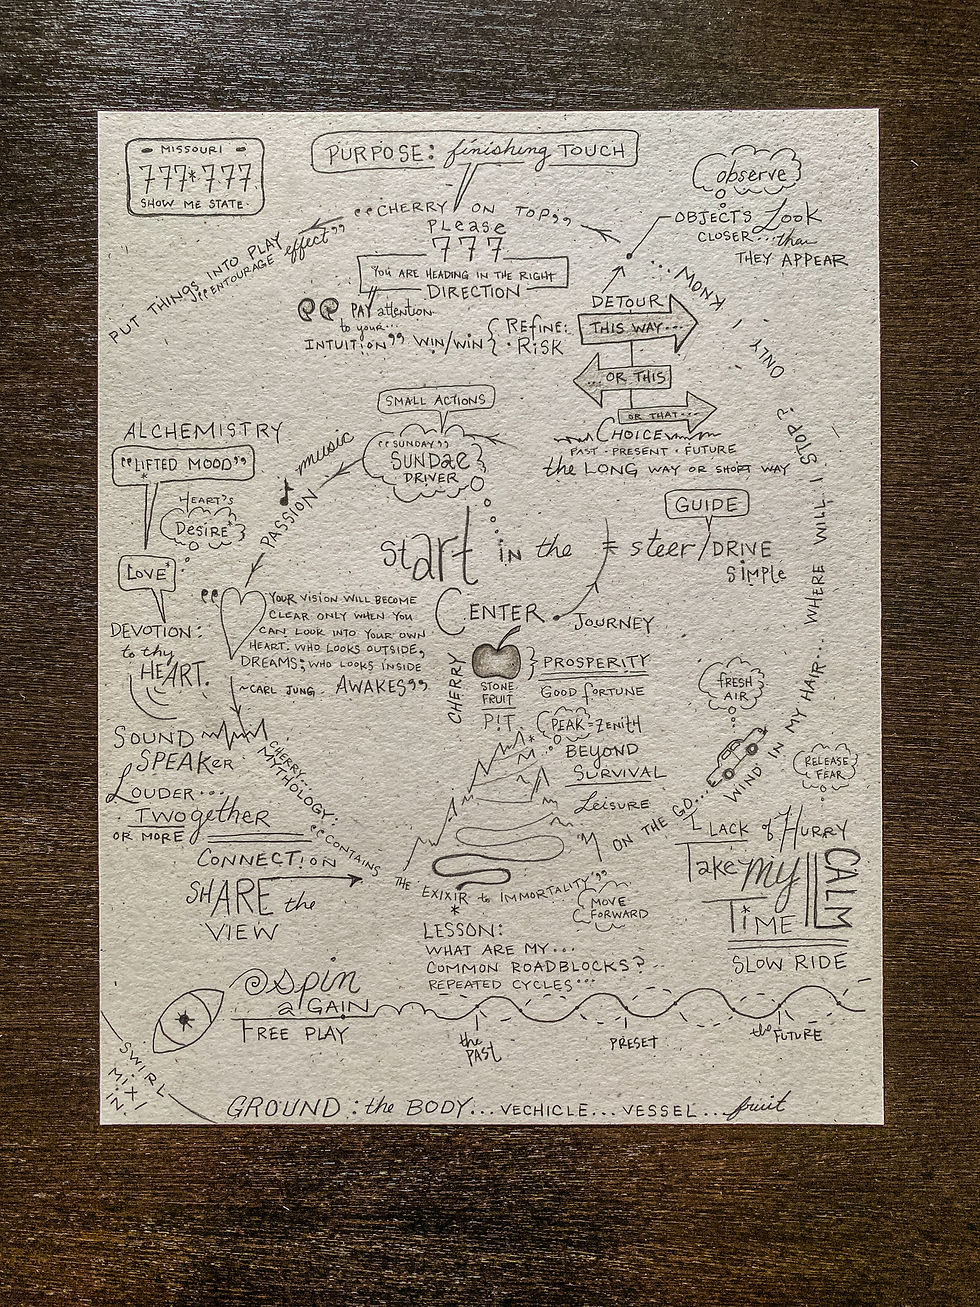 MISSOURI
777*777
SHOW ME STATE
PURPOSE: finishing TOUCH
"CHERRY ON TOP"
PUT THINGS INTO PLAY
"ENTOURAGE effect"
PLEASE
777
YOU ARE HEADING IN THE RIGHT
DIRECTION
PAY attention
to your...
INTUITION"
WIN/WIN
REFINE:
RISK
observe
OBJECTS Look
CLOSER... than
THEY APPEAR
DETOUR
THIS WAY...
...OR THIS
OR THAT...
CHOICE
PAST · PRESENT · FUTURE
the LONG WAY OR SHORT WAY
WHERE WILL I STOP? ONLY I KNOW...
SMALL ACTIONS
"SUNDAY"
SUNDAE
DRIVER
music
PASSION
ALCHEMISTRY
"LIFTED MOOD"
HEART'S
DESIRE*
LOVE*
DEVOTION:
to thy
HEART.
"YOUR VISION WILL BECOME
CLEAR ONLY WHEN YOU
CAN LOOK INTO YOUR OWN
HEART. WHO LOOKS OUTSIDE,
DREAMS; WHO LOOKS INSIDE
~CARL JUNG. AWAKES"
START IN the
CENTER
GUIDE
steer/DRIVE
SIMPLE
JOURNEY
CHERRY
STONE
FRUIT
P!T.
PROSPERITY
GOOD fORTUNE
PEAK=ZENITH
BEYOND
SURVIVAL
Leisure
FRESH
AIR
ON THE GO...
WIND IN MY HAIR...
RELEASE
FEAR
LACK of HURRY
Take my
TIME
CALM
SLOW RIDE
SOUND
SPEAKER
LOUDER...
TWOgether
OR MORE
CONNECTION
SHARE the
VIEW
CHERRY...
MYTHOLOGY:
"CONTAINS
THE EXIXIR to IMMORTALITY"
*
MOVE
FORWARD
LESSON:
WHAT ARE MY...
COMMON ROADBLOCKS?
REPEATED CYCLES...
spin
aGAIN
FREE PLAY
the
PAST
PRESET
the FUTURE
SWIRL
MIXI
IN
GROUND: the BODY... VECHICLE... VESSEL... fruit